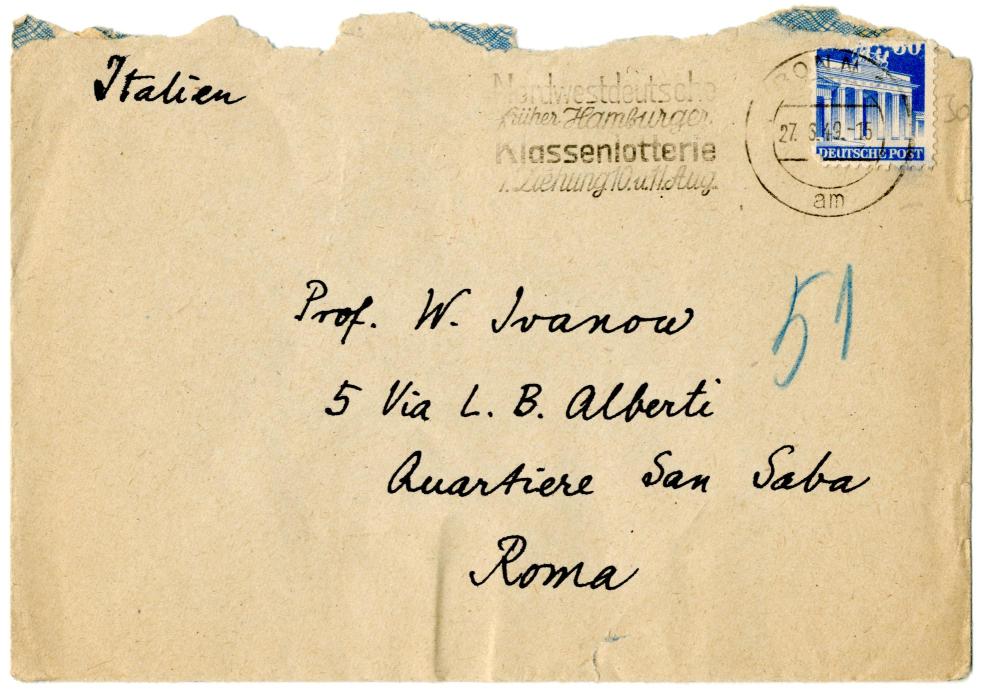 Italien
Nordwestdeutsche
früher Hamburger
Klassenlotterie
1. Ziehung 10. u. 11. Aug.
27. 6. 49.-15
am
DEUTSCHE POST
Prof. W. Ivanow
51
5 Via L. B. Alberti
Quartiere San Saba
Roma